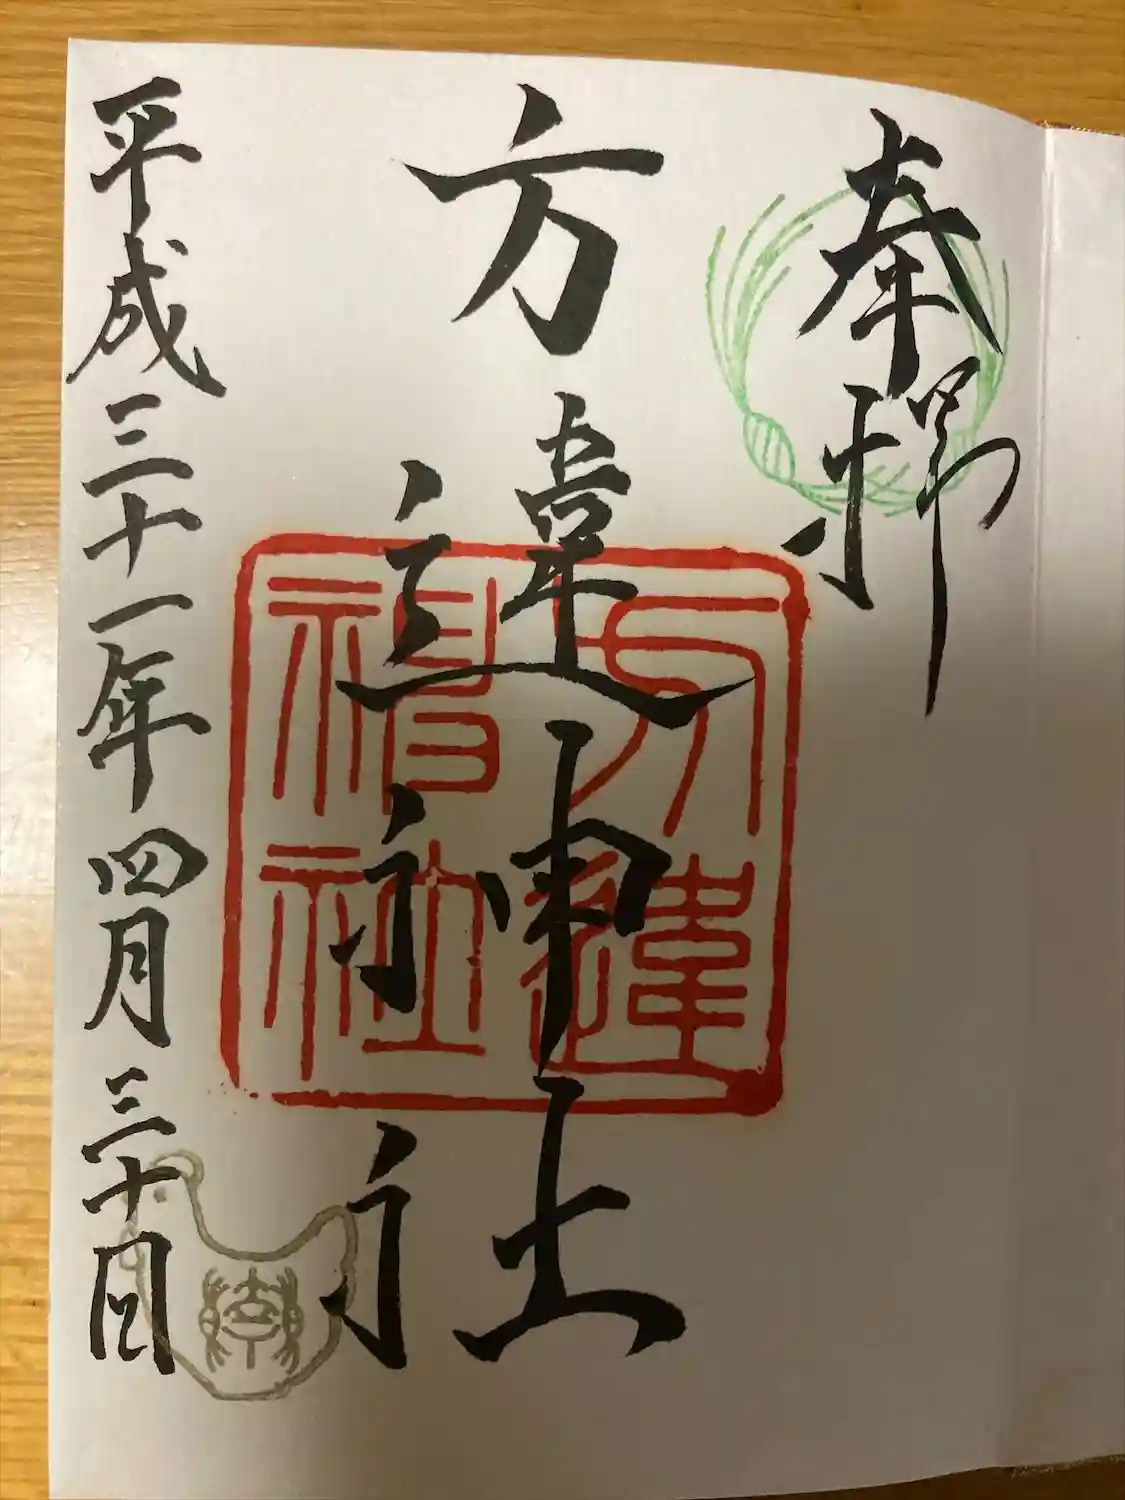 奉拝
方違神社
方違神社
平成三十一年四月三十日